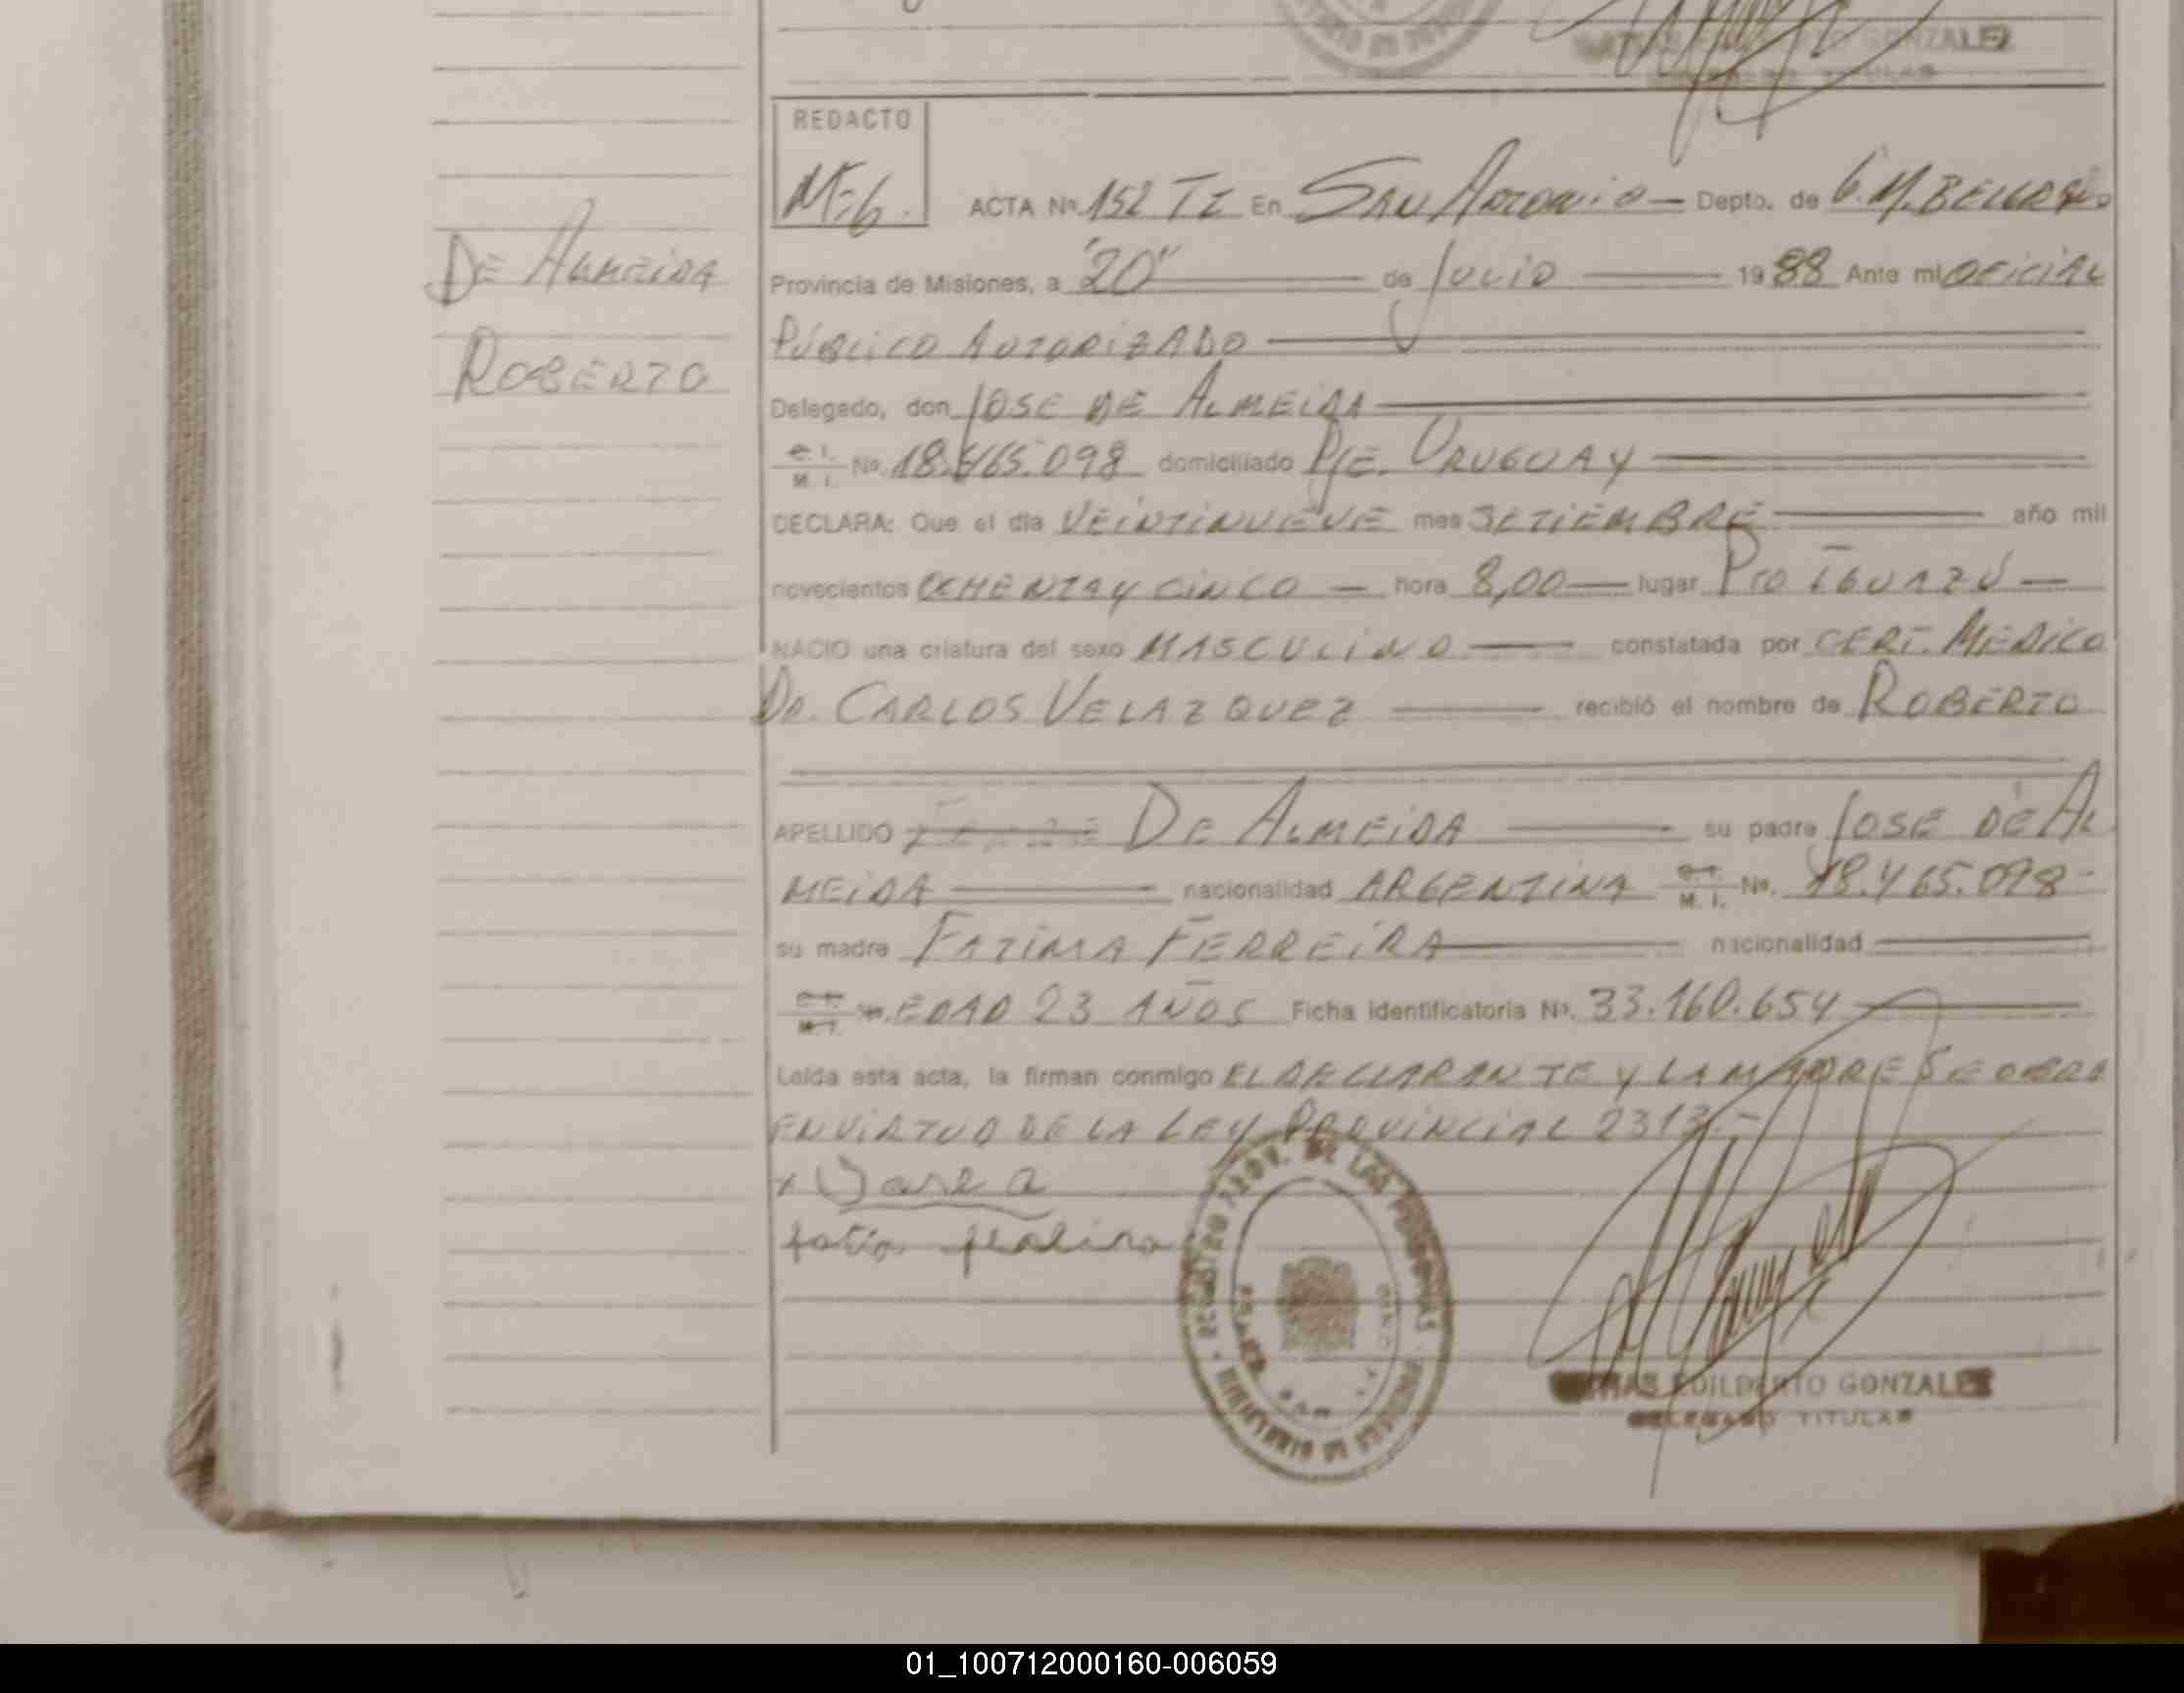 GONZALEZ
REDACTO
ACTA No. 152 TI En SAN ANTONIO — Depto. de G. M. BELGRANO
DE ALMEIDA
Provincia de Misiones, a "20" de JULIO 1988 Ante mi OFICIAL
PÚBLICO AUTORIZADO
ROBERTO
Delegado, don JOSE DE ALMEIDA
C. I. M. I. No. 18.465.098 domiciliado PJE. URUGUAY
DECLARA: Que el día VEINTINUEVE mes SETIEMBRE año mil
novecientos OCHENTA Y CINCO — hora 8,00 — lugar PTO IGUAZÚ —
NACIO una criatura del sexo MASCULINO constatada por CERT. MEDICO
DR. CARLOS VELAZQUEZ recibió el nombre de ROBERTO
APELLIDO DE ALMEIDA su padre JOSE DE AL
MEIDA nacionalidad ARGENTINA C. I. M. I. No. 18.465.098-
su madre FATIMA FERREIRA nacionalidad
C. I. M. I. No. EDAD 23 AÑOS Ficha Identificatoria No. 33.160.654
Leída esta acta, la firman conmigo EL DECLARANTE Y LA MADRE SE OBRA
EN VIRTUD DE LA LEY PROVINCIAL 2313.-
REGISTRO PROV. DE LAS PERSONAS
EDILBERTO GONZALEZ
DELEGADO TITULAR
01_100712000160-006059